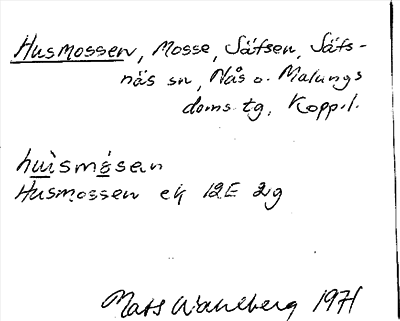 Husmossen, Mosse, Säfsen, Säfs-
näs sn, Nås o. Malungs
doms. tg, Kopp.l.
hu̲ìsmò̲san
Husmossen ek 12E 2g
Mats Wahlberg 1971